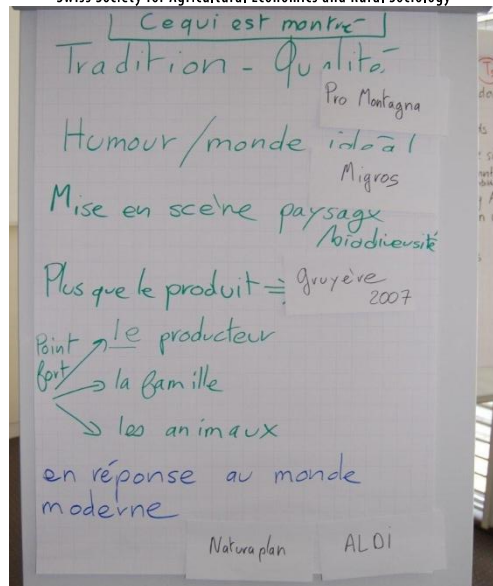 Swiss Society for Agricultural Economics and Rural Sociology
Ce qui est montré
Tradition - Qualité
Pro Montagna
Humour / monde idéal
Migros
Mise en scène paysage
/biodiversité
Plus que le produit =
gruyère
2007
Point fort
le producteur
la famille
les animaux
en réponse au monde
moderne
Naturaplan
ALDI